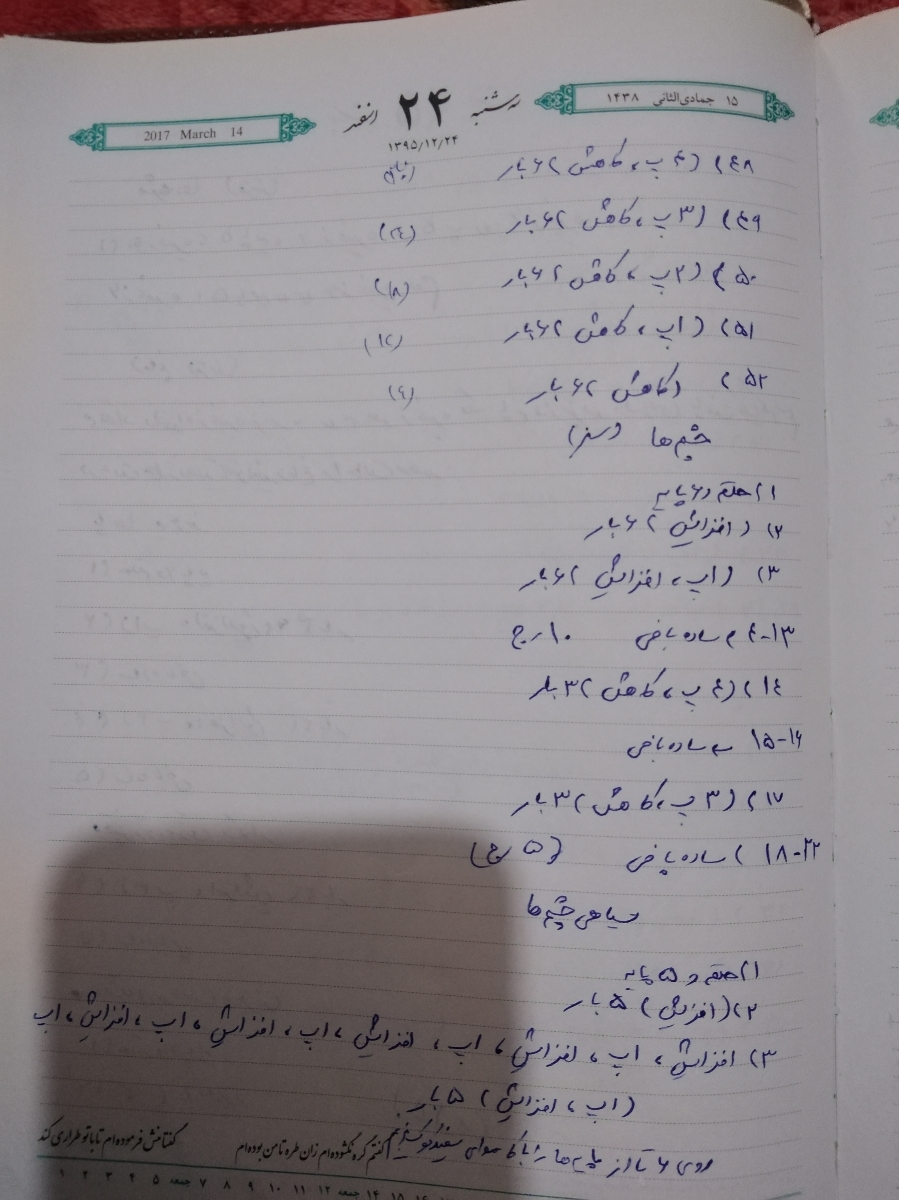 ۱۵ جمادی‌الثانی ۱۴۳۸
سه شنبه ۲۴ اسفند
۱۳۹۵/۱۲/۲۴
2017 March 14
۴۸) (۴ پ، کاهش) ۶ بار
۴۹) (۳ پ، کاهش) ۶ بار (۲۴)
۵۰) (۲ پ، کاهش) ۶ بار (۱۸)
۵۱) (۱پ، کاهش) ۶ بار (۱۲)
۵۲) (کاهش) ۶ بار (۶)
چشم ها (سبز)
۱) حلقه و ۶ پایه
۲) (افزایش) ۶ بار
۳) (۱پ، افزایش) ۶ بار
۴-۱۳ ساده بافی ۱۰ رج
۱۴) (۴ پ، کاهش) ۳ بار
۱۵-۱۶ ساده بافی
۱۷) (۳ پ، کاهش) ۳ بار
۱۸-۲۲) ساده بافی (۵ رج)
سیاهی چشم ها
۱) حلقه و ۵ پایه
۲) (افزایش) ۵ بار
۳) افزایش، ۱پ، افزایش، ۱پ، افزایش، ۱پ، افزایش، ۱پ، افزایش، ۱پ
(۱پ، افزایش) ۵ بار
روی ۶ تا از پایه ها را با کاموای سفید
گفتم گره نگشوده‌ام زان طره تا من بوده‌ام
گفتا منش فرموده‌ام تا با تو طراری کند
۱ ۲ ۳ ۴ ۵ جمعه ۷ ۸ ۹ ۱۰ ۱۱ ۱۲ جمعه ۱۴ ۱۵ ۱۶